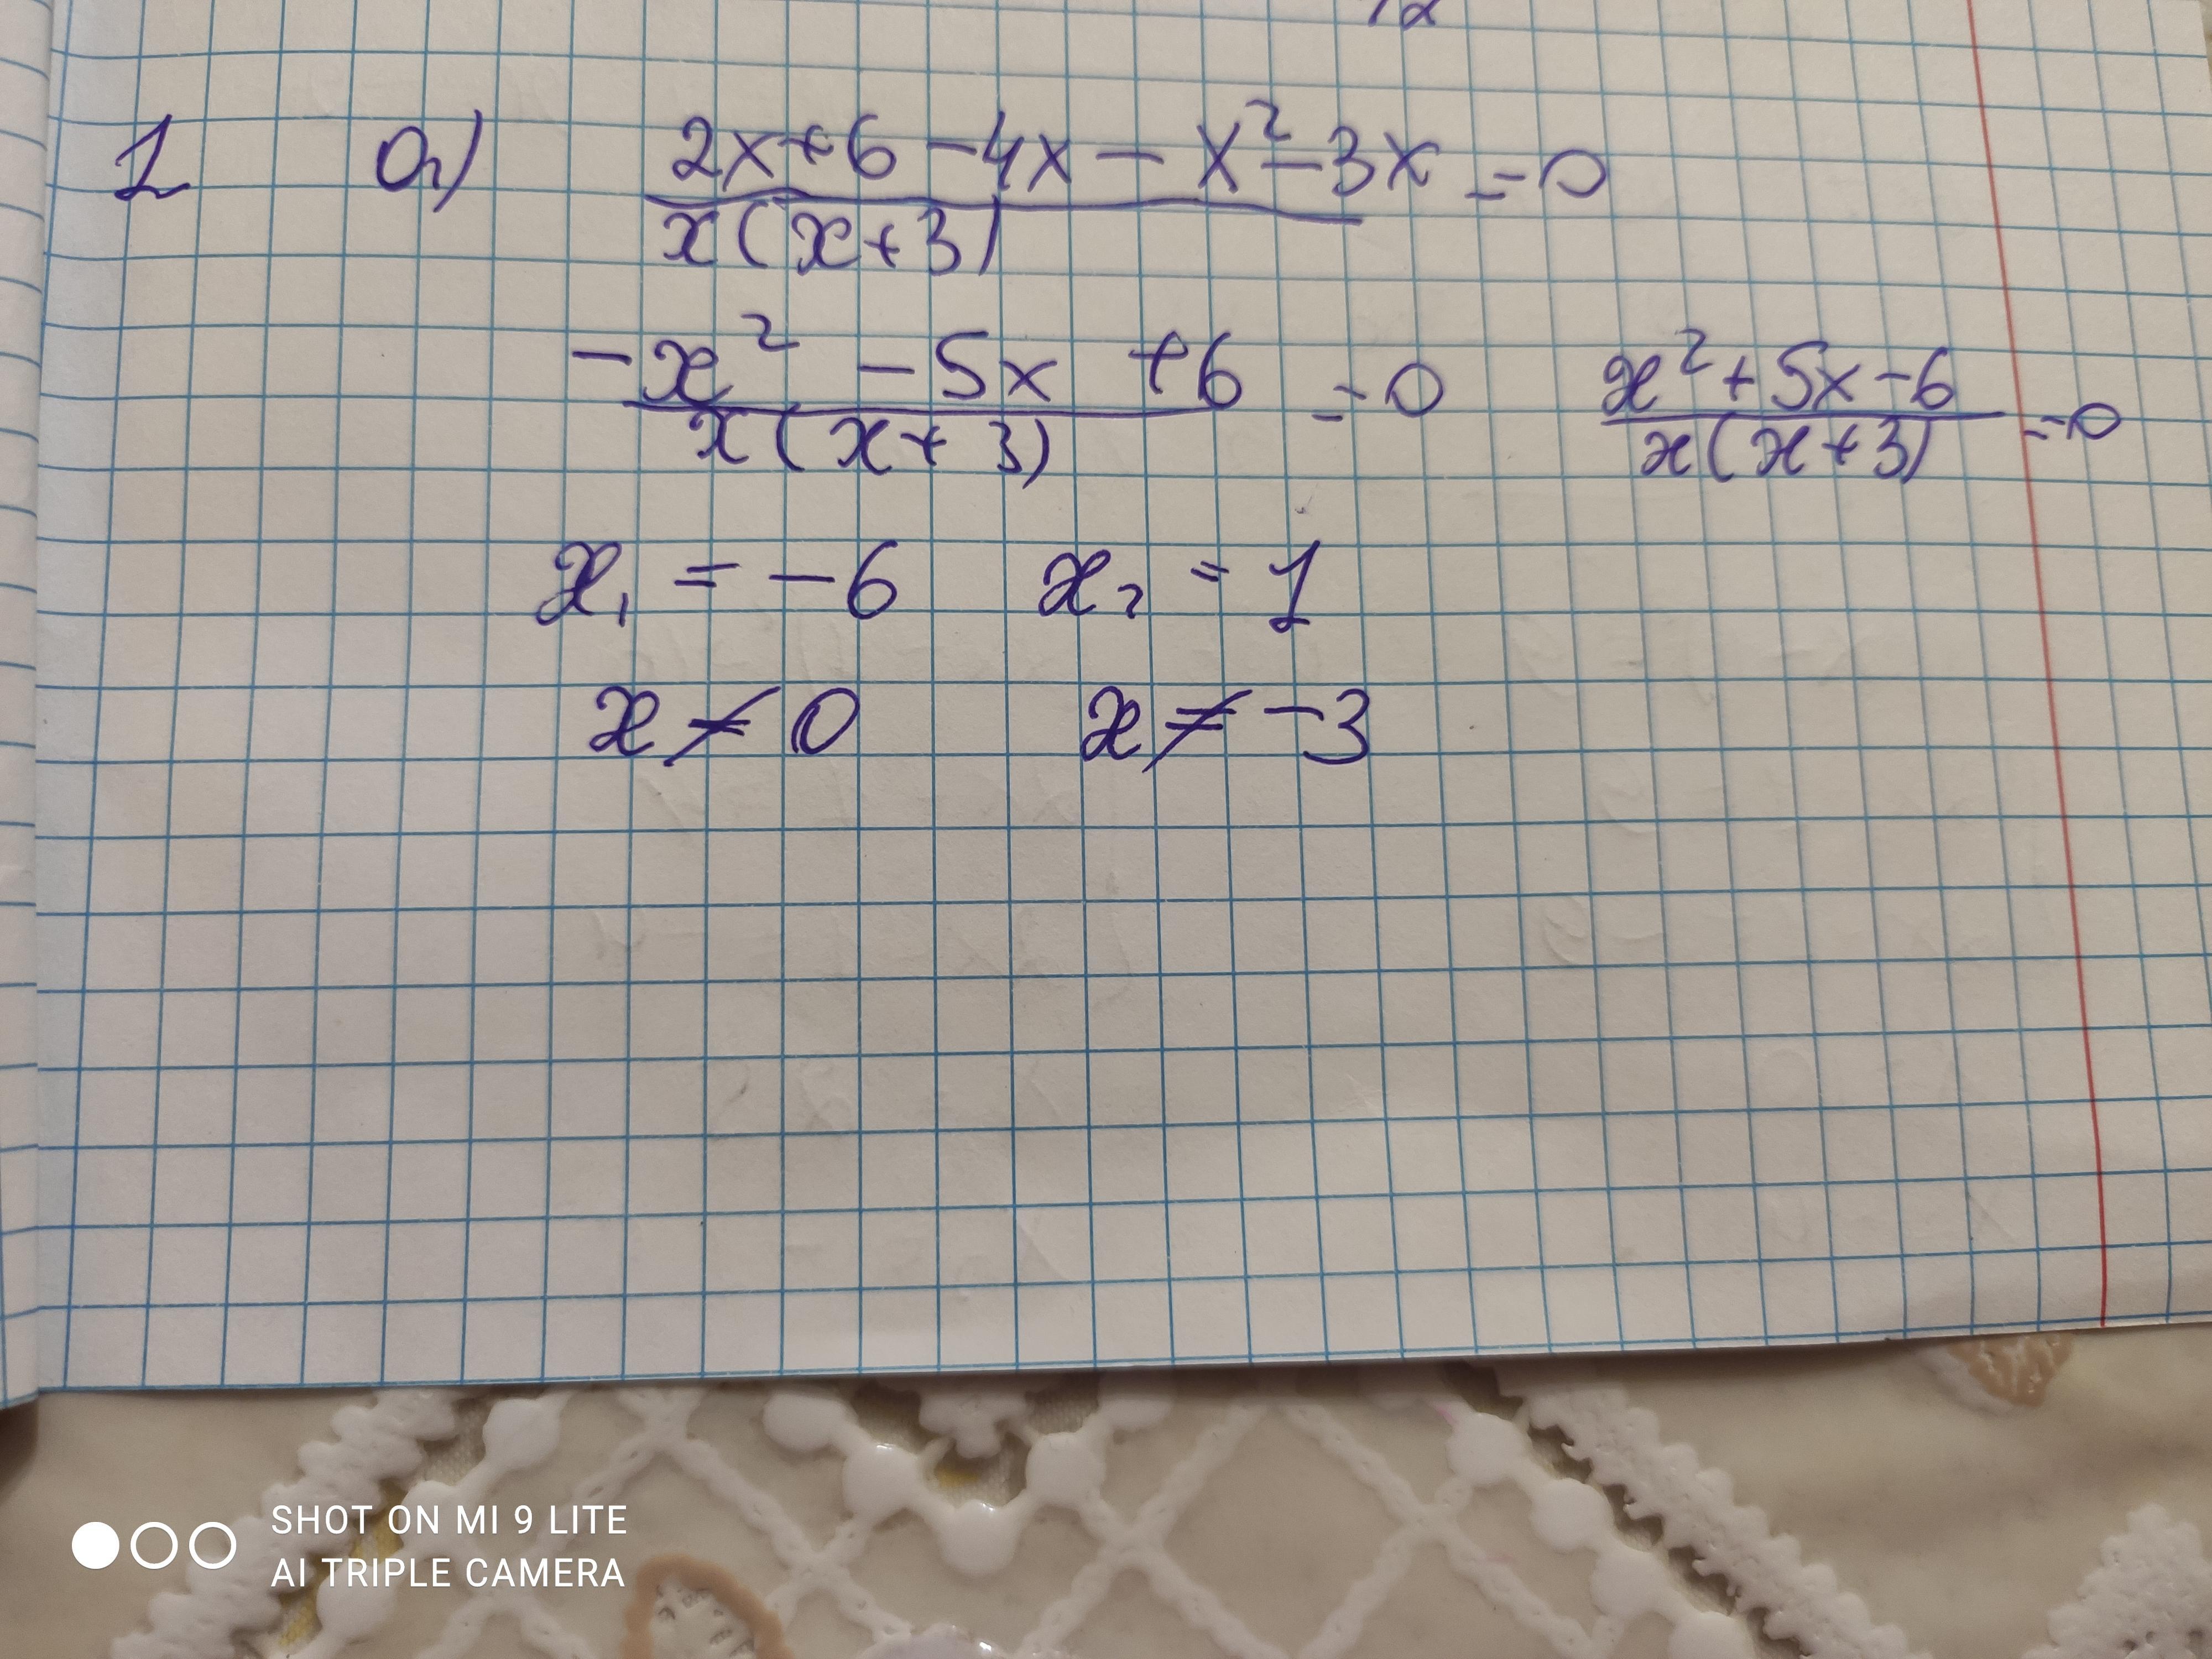 1 а) (2x+6-4x-x²-3x)/(x(x+3)) =0
(-x²-5x+6)/(x(x+3)) =0 (x²+5x-6)/(x(x+3)) =0
x₁ = -6 x₂ = 1
x ≠ 0 x ≠ -3
SHOT ON MI 9 LITE
AI TRIPLE CAMERA